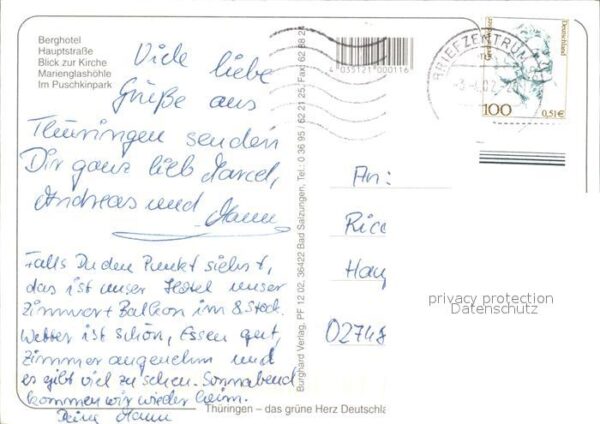 Berghotel
Hauptstraße
Blick zur Kirche
Marienglashöhle
Im Puschkinpark
Viele liebe
Grüße aus
Thüringen senden
Dir ganz lieb Marcel,
Andreas und Mann
Falls Du den Punkt siehst,
das ist unser Hotel unser
Zimmer + Balkon im 8 Stock.
Wetter ist schön, Essen gut,
Zimmer angenehm und
es gibt viel zu sehen. Sonnabend
kommen wir wieder heim.
Deine Mann
4 035121 000116
Burghard Verlag, PF 12 02, 36422 Bad Salzungen, Tel.: 0 36 95 / 62 21 25, Fax: 62 88 24
BRIEFZENTRUM
Deutschland
100
0,51€
An:
Ricc
Hau
02748
privacy protection
Datenschutz
Thüringen – das grüne Herz Deutschla